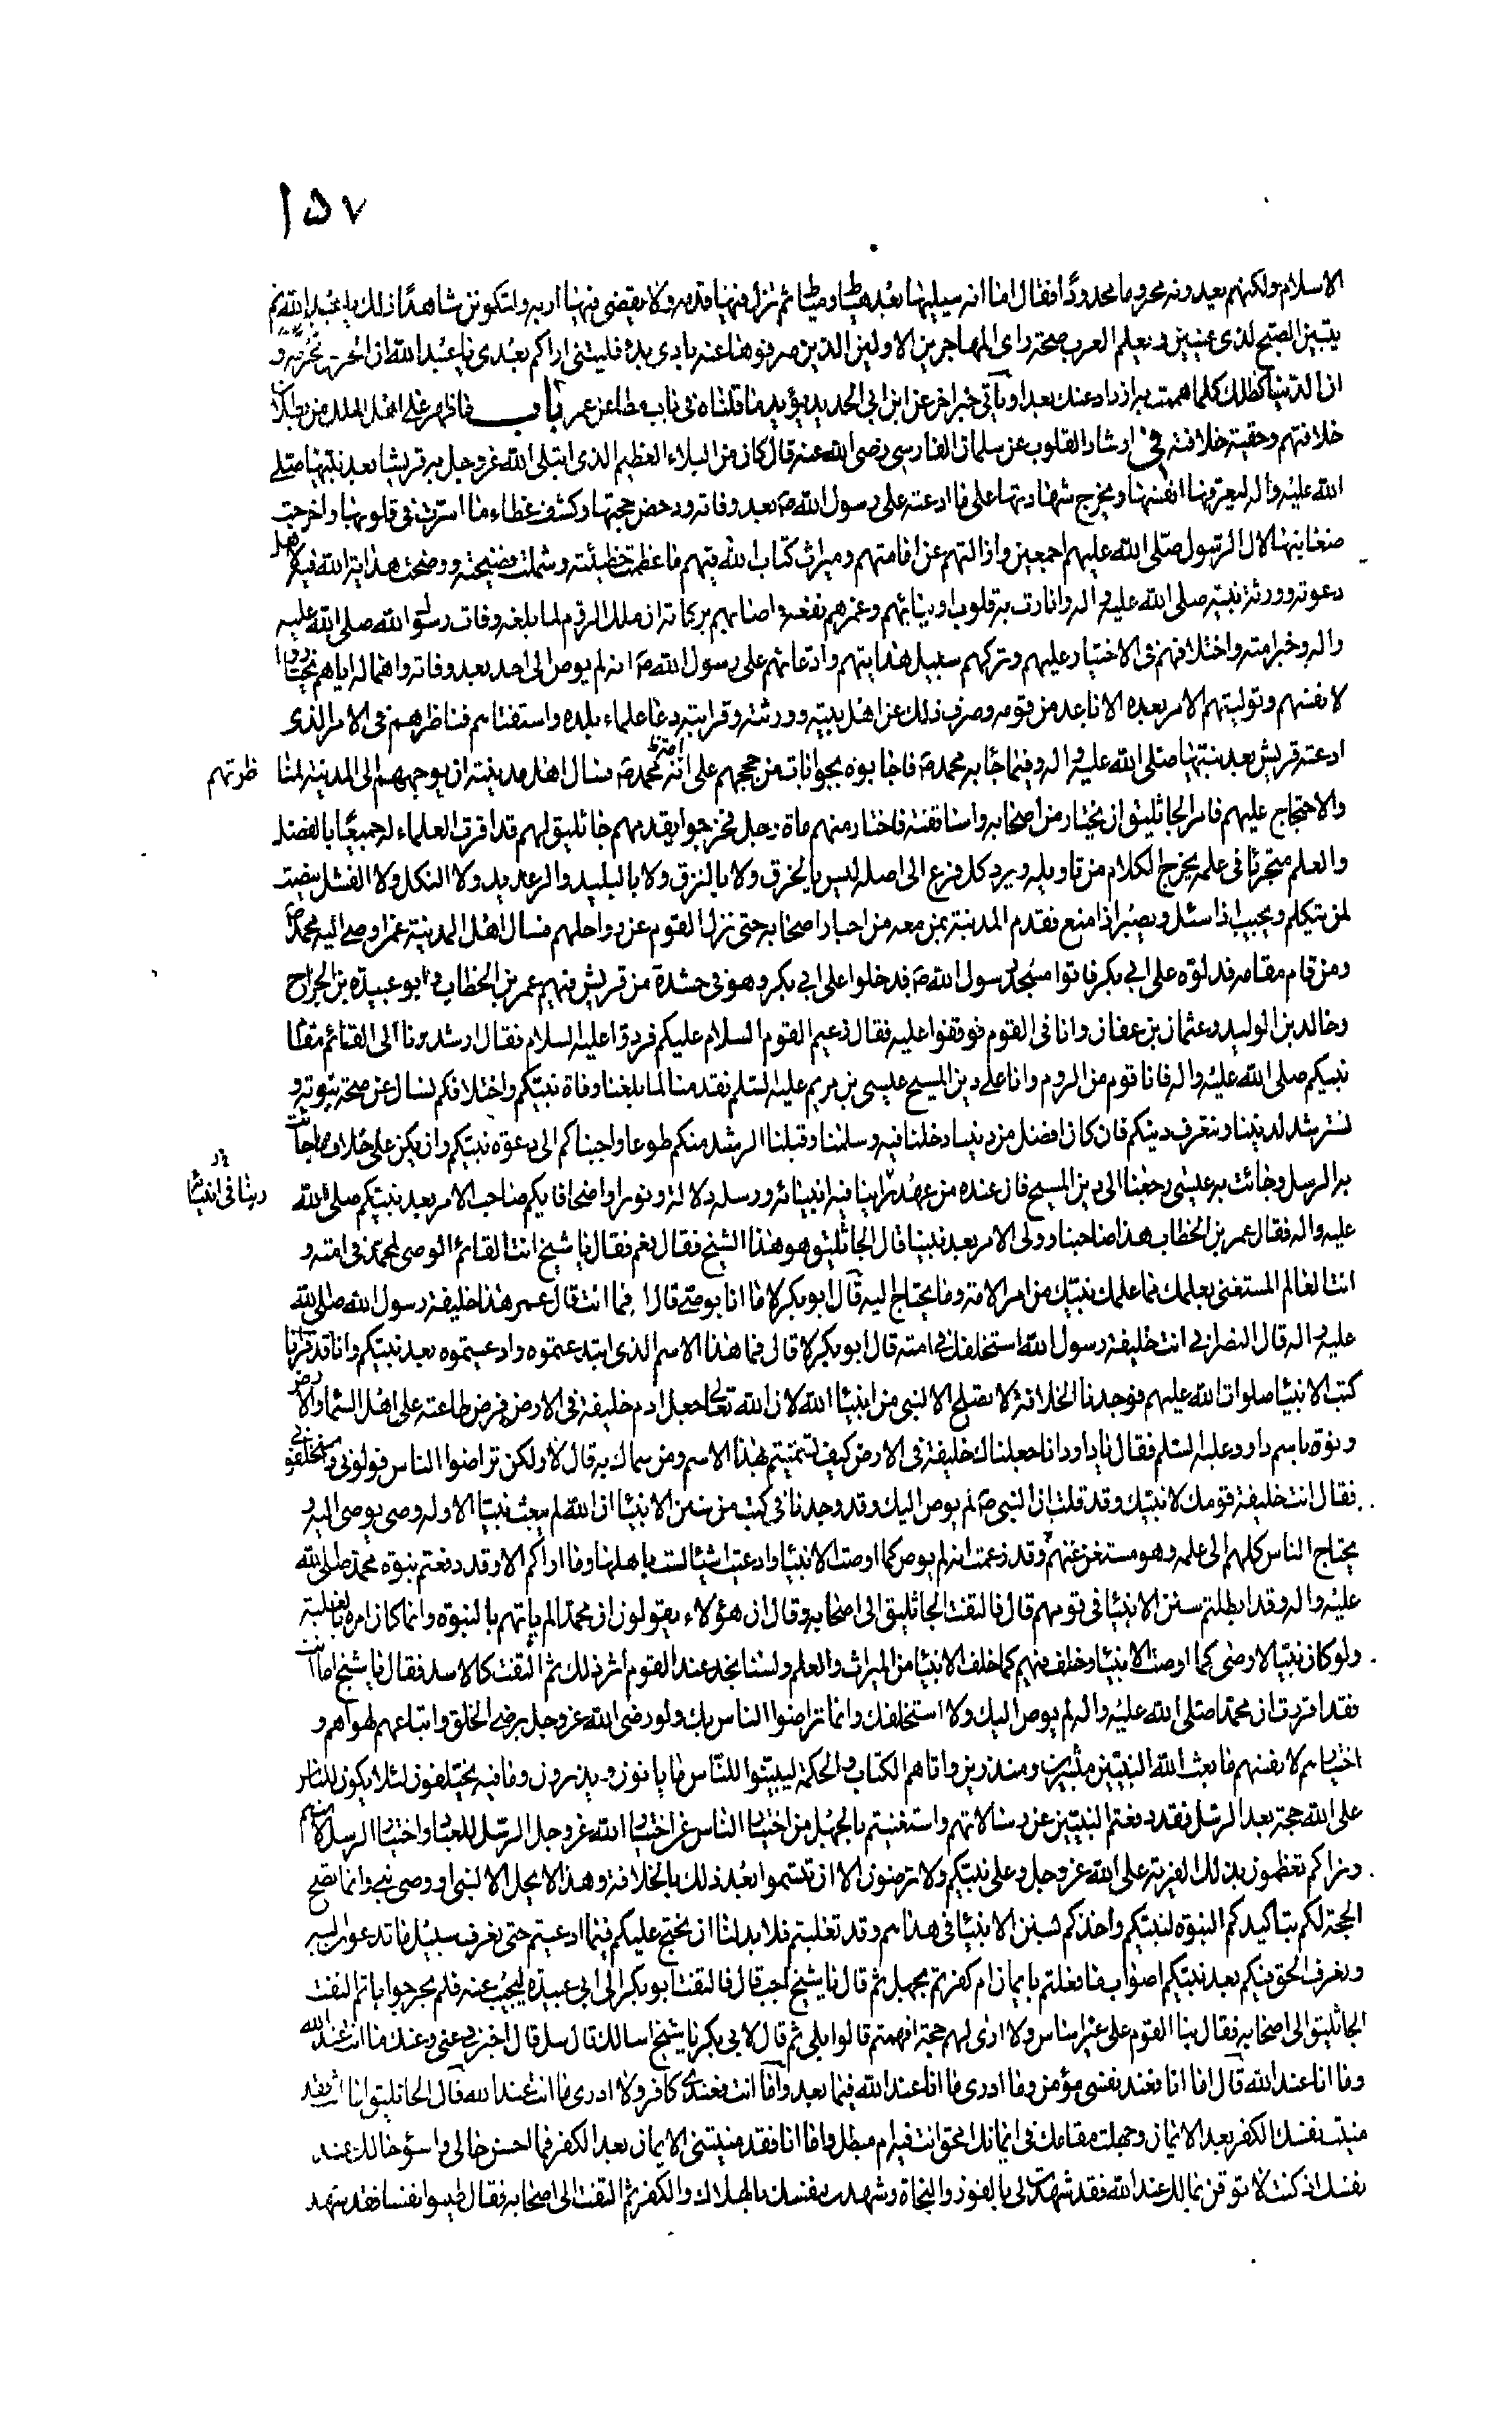 ١٥٧
الاسلام ولكنهم يعيدونه محروما محدودا فقال اما انه سيليها بعد هياط ومياط ثم تزل فيها قدمه ولا يقضى فيها اربه ولتكونن شاهدا ذلك يا عبد الله ثم
يتبين الصبح لذى عينين ويعلم العرب صحة راى المهاجرين الاولين الذين صرفوها عنه بادى بدء فليتنى اراكم بعدى يا عبد الله ان الحرص محرمة و
ان الدنيا كظلك كلما هممت به ازداد عنك بعدا وياتى خبر اخر عن ابن ابى الحديد يؤيد ما قلناه فى باب مطاعن عمر باب ما ظهر على اهل الملل من بطلان
خلافتهم وحقية خلافته فى ارشاد القلوب عن سلمان الفارسى رضى الله عنه قال كان من البلاء العظيم الذى ابتلى الله عز وجل به قريشا بعد نبيها صلى
الله عليه واله ليعرفها انفسها ويخرج شهادتها على ما ادعته على رسول الله ص بعد وفاته ودحض حجتها وكشف غطاء ما استرت فى قلوبها واخرجت
ضغاينها لال الرسول صلى الله عليهم اجمعين وازالتهم عن اقامتهم وميراث كتاب الله فيهم ما عظمت خطيئته وشملت فضيحته ووضحت هداية الله فيه لاهل
دعوته وورثة نبيه صلى الله عليه واله وانارت به قلوب اوليائهم وغمرهم نفعه واصابهم بركاته ان ملك الروم لما بلغه وفات رسول الله صلى الله عليه
واله وخبر امته واختلافهم فى الاختيار عليهم وتركهم سبيل هدايتهم وادعائهم على رسول الله ص انه لم يوص الى احد بعد وفاته واهماله اياهم يختاروا
لانفسهم وتوليتهم الامر بعده الاباعد من قومه وصرف ذلك عن اهل بيته وورثته وقرابته دعا علماء بلده واستفتاهم فناظرهم فى الامر الذى
ادعته قريش بعد نبيها صلى الله عليه واله وفيما جاء به محمد ص فاجابوه بجوابات من حججهم على انه امة محمد ص فسال اهل مدينته ان يوجههم الى المدينة لمناظرتهم
والاحتجاج عليهم فامر الجاثليق ان يختار من اصحابه واساقفته فاختار منهم ماة رجل فخرجوا يقدمهم جاثليق لهم قد اقرت العلماء له جميعا بالفضل
والعلم متبحرا فى علمه يخرج الكلام من تاويله ويرد كل فرع الى اصله ليس بالخرق ولا بالنزق ولا بالبليد والرعديد ولا النكل ولا الفشل ينصت
لمن يتكلم ويجيب اذا سئل ويصبر اذا منع فقدم المدينة بمن معه من احبار اصحابه حتى نزل القوم عن رواحلهم فسال اهل المدينة عمن اوصى اليه محمد ص
ومن قام مقامه فدلوه على ابى بكر فاتوا مسجد رسول الله ص فدخلوا على ابى بكر وهو فى حشدة من قريش فيهم عمر بن الخطاب و ابو عبيدة بن الجراح
وخالد بن الوليد وعثمان بن عفان وانا فى القوم فوقفوا عليه فقال زعيم القوم السلام عليكم فردوا عليه السلام فقال ارشدونا الى القائم مقام
نبيكم صلى الله عليه واله فانا قوم من الروم وانا على دين المسيح عيسى بن مريم عليه السلم فقدمنا لما بلغنا وفاة نبيكم واختلافكم لنسال عن صحة نبوته و
نسترشد لديننا ونتعرف دينكم فان كان افضل من ديننا دخلنا فيه وسلمنا وقبلنا الرشد منكم طوعا واجبناكم الى دعوة نبيكم وان يكن على خلاف ما جاءت
به الرسل وجاءت به عيسى رجعنا الى دين المسيح فان عنده من عهد ربنا فى انبيائه ورسله دلالة ونورا واضحا فايكم صاحب الامر بعد نبيكم صلى الله
عليه واله فقال عمر بن الخطاب هذا صاحبنا وولى الامر بعد نبينا قال الجاثليق هو هذا الشيخ فقال نعم فقال يا شيخ انت القائم الوصى لمحمد فى امته و
انت العالم المستغنى بعلمك مما علمك نبيك من امر الامة وما يحتاج اليه قال ابو بكر لا ما انا بوصى قال له فما انت قال عمر هذا خليفة رسول الله صلى الله
عليه واله قال النصرانى انت خليفة رسول الله استخلفك فى امته قال ابو بكر لا قال فما هذا الاسم الذى ابتدعتموه وادعيتموه بعد نبيكم وانا قد قرانا
كتب الانبيا صلوات الله عليهم فوجدنا الخلافة لا تصلح الا لنبى من انبيا الله لان الله تعالى جعل ادم خليفة فى الارض فرض طاعته على اهل السماء والارض
ونوه باسم داود عليه السلم فقال يا داود انا جعلناك خليفة فى الارض كيف تسميتم بهذا الاسم ومن سماك به قال لا ولكن تراضوا الناس فولونى واستخلفونى
فقال انت خليفة قومك لا نبيك وقد قلت ان النبى ص لم يوص اليك وقد وجدنا فى كتب من سنن الانبيا ان الله لم يبعث نبيا الا وله وصى يوصى اليه و
يحتاج الناس كلهم الى علمه وهو مستغن عنهم وقد زعمت انه لم يوص كما اوصت الانبيا وادعيت اشيا لست باهلها وما اراكم الا وقد دفعتم نبوة محمد صلى الله
عليه واله وقد ابطلتم سنن الانبيا فى قومهم قال فالتفت الجاثليق الى اصحابه وقال ان هؤلاء يقولون ان محمدا لم ياتهم بالنبوة وانما كان امره بالغلبة
ولو كان نبيا لاوصى كما اوصت الانبيا وخلف فيهم كما خلف الانبيا من الميراث والعلم ولسنا نجد عند القوم اثر ذلك ثم التفت كالاسد فقال يا شيخ اما انت
فقد اقررت ان محمدا صلى الله عليه واله لم يوص اليك ولا استخلفك وانما تراضوا الناس بك ولو رضى الله عز وجل برضى الخلق واتباعهم لهواهم و
اختيارهم لانفسهم ما بعث الله النبيين مبشرين ومنذرين واتاهم الكتاب والحكمة ليبينوا للناس ما ياتون ويذرون وما فيه يختلفون لئلا يكون للناس
على الله حجة بعد الرسل فقد دفعتم النبيين عن رسالاتهم واستغنيتم بالجهل من اختيار الناس عن اختيار الله عز وجل الرسل للعباد واختيار الرسل لامتهم
ونراكم تعظمون بذلك الفرية على الله عز وجل وعلى نبيكم ولا ترضون الا ان تتسموا بعد ذلك بالخلافة وهذا لا يحل الا لنبى او وصى نبى وانما تصح
الحجة لكم بتاكيدكم النبوة لنبيكم واخذكم بسنن الانبيا فى هداهم وقد تغلبتم فلا بد لنا ان نحتج عليكم فيما ادعيتم حتى نعرف سبيل ما تدعون اليه
ونعرف الحق فيكم بعد نبيكم اصواب ما فعلتم بايمان ام كفرتم بجهل ثم قال يا شيخ اجب قال فالتفت ابو بكر الى ابى عبيدة ليجيب عنه فلم يحر جوابا ثم التفت
الجاثليق الى اصحابه فقال بنا القوم على غير اساس ولا ارى لهم حجة افهمتم قالوا بلى ثم قال لابى بكر يا شيخ اسالك قال سل قال اخبرنى عنى وعنك ما انت عند الله
وما انا عند الله قال اما انا فعند نفسى مؤمن وما ادرى ما انا عند الله فيما بعد واما انت فعندى كافر ولا ادرى ما انت عند الله قال الجاثليق اما انت فقد
منيت نفسك الكفر بعد الايمان وجهلت مقامك فى ايمانك امحق انت فيه ام مبطل واما انا فقد منيتنى الايمان بعد الكفر فما احسن حالى واسوء حالك عند
نفسك اذ كنت لا توقن بما لك عند الله فقد شهدت لى بالفوز والنجاة وشهدت لنفسك بالهلاك والكفر ثم التفت الى اصحابه فقال طيبوا نفسا فقد شهد